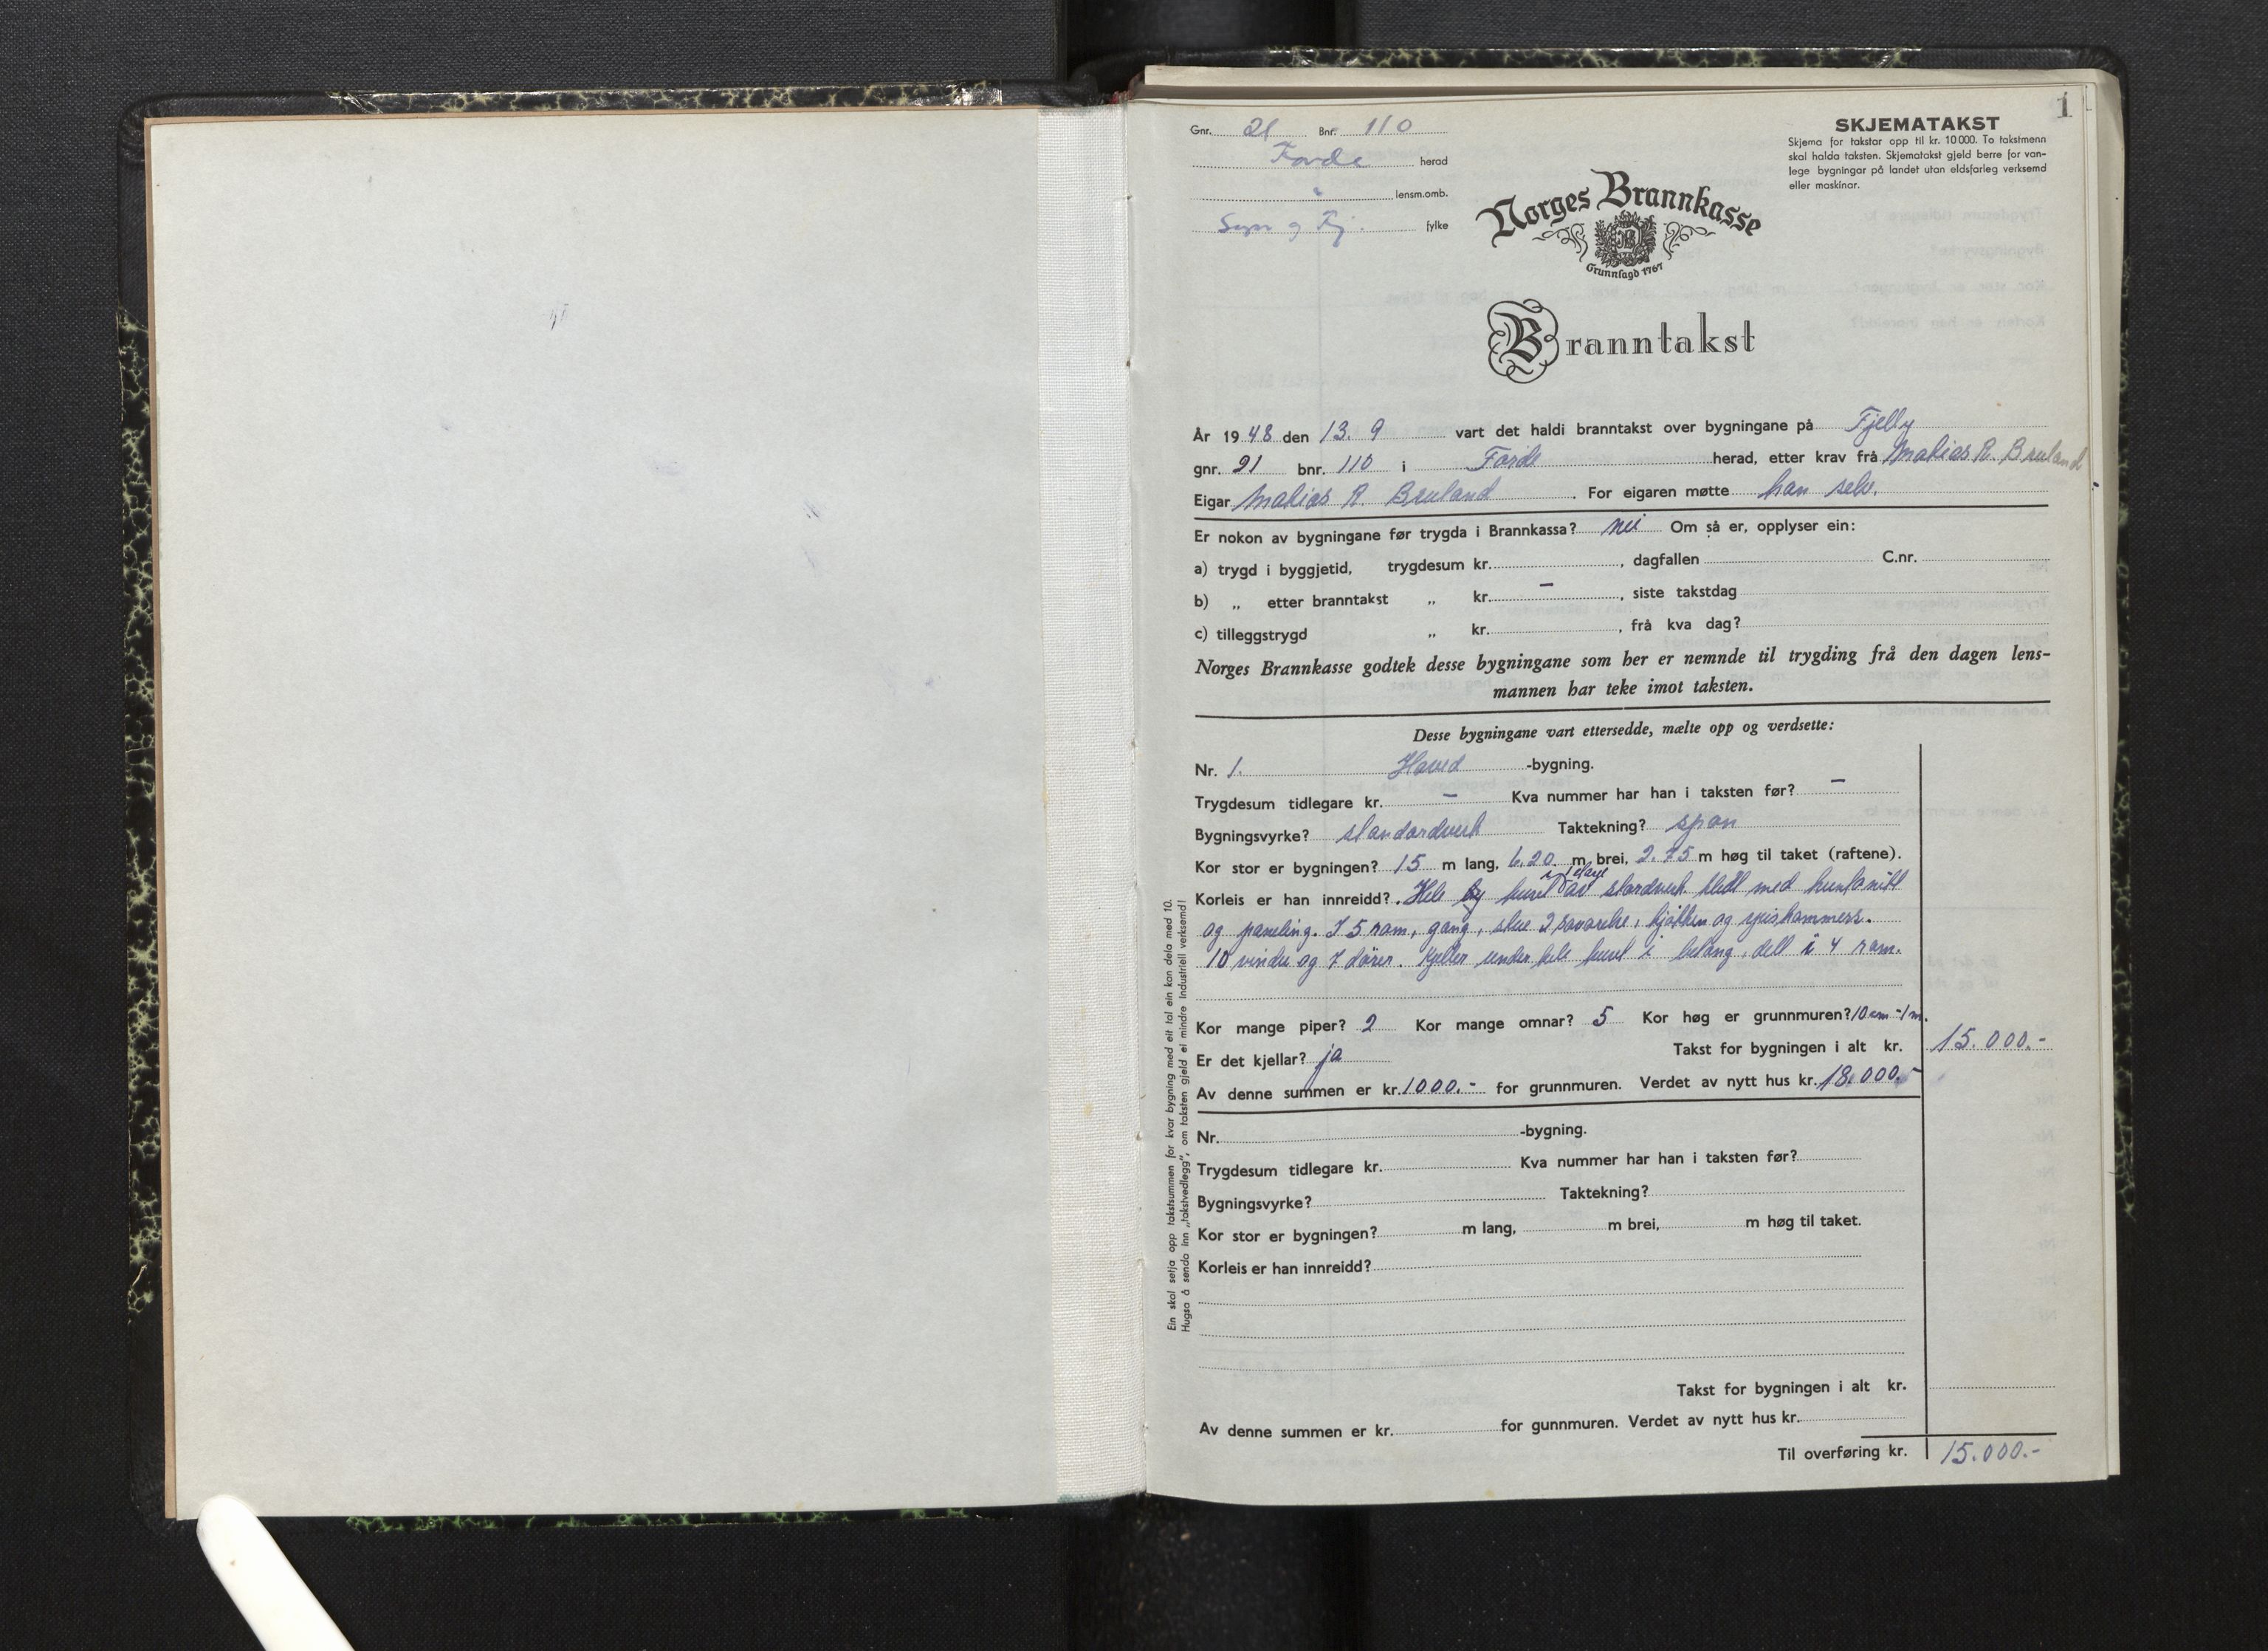 1
Gnr. 21 Bnr. 110
Førde herad
" lensm.omb.
Sogn og Fj. fylke
SKJEMATAKST
Skjema for takstar opp til kr. 10 000. To takstmenn
skal halda taksten. Skjematakst gjeld berre for van-
lege bygningar på landet utan eldsfarleg verksemd
eller maskinar.
Norges Brannkasse
Grunnlagd 1767
Branntakst
År 1948 den 13. 9 vart det haldi branntakst over bygningane på Fjelly
gnr. 21 bnr. 110 i Førde herad, etter krav frå Matias R. Bruland
Eigar Matias R. Bruland. For eigaren møtte han selv.
Er nokon av bygningane før trygda i Brannkassa? nei Om så er, opplyser ein:
a) trygd i byggjetid, trygdesum kr. , dagfallen C.nr.
b) „ etter branntakst „ kr. – , siste takstdag
c) tilleggstrygd „ kr. , frå kva dag?
Norges Brannkasse godtek desse bygningane som her er nemnde til trygding frå den dagen lens-
mannen har teke imot taksten.
Desse bygningane vart ettersedde, mælte opp og verdsette:
Nr. 1. Hoved -bygning.
Trygdesum tidlegare kr. – Kva nummer har han i taksten før? –
Bygningsvyrke? standardverk Taktekning? spon
Kor stor er bygningen? 15 m lang, 6.20 m brei, 2.75 m høg til taket (raftene).
Korleis er han innreidd? Hele by huset i 1 etage av stardverk kledt med huntonitt
og paneling. I 5 rom, gang, stue 2 soverelse, kjøkken og spiskammers.
10 vindu og 7 dører. Kjeller under hele huset i betong, delt i 4 rom.
Kor mange piper? 2 Kor mange omnar? 5 Kor høg er grunnmuren? 10 cm - 1 m.
Er det kjellar? ja Takst for bygningen i alt kr. 15.000.-
Av denne summen er kr. 1000.- for grunnmuren. Verdet av nytt hus kr. 18.000.-
Nr. -bygning.
Trygdesum tidlegare kr. Kva nummer har han i taksten før?
Bygningsvyrke? Taktekning?
Kor stor er bygningen? m lang, m brei, m høg til taket.
Korleis er han innreidd?
Takst for bygningen i alt kr.
Av denne summen er kr. for gunnmuren. Verdet av nytt hus kr.
Til overføring kr. 15.000.-
Ein skal setja opp takstsummen for kvar bygning med eit tal ein kan dela med 10.
Hugsa å senda inn „takstvedlegg", om taksten gjeld ei mindre industriell verksemd!